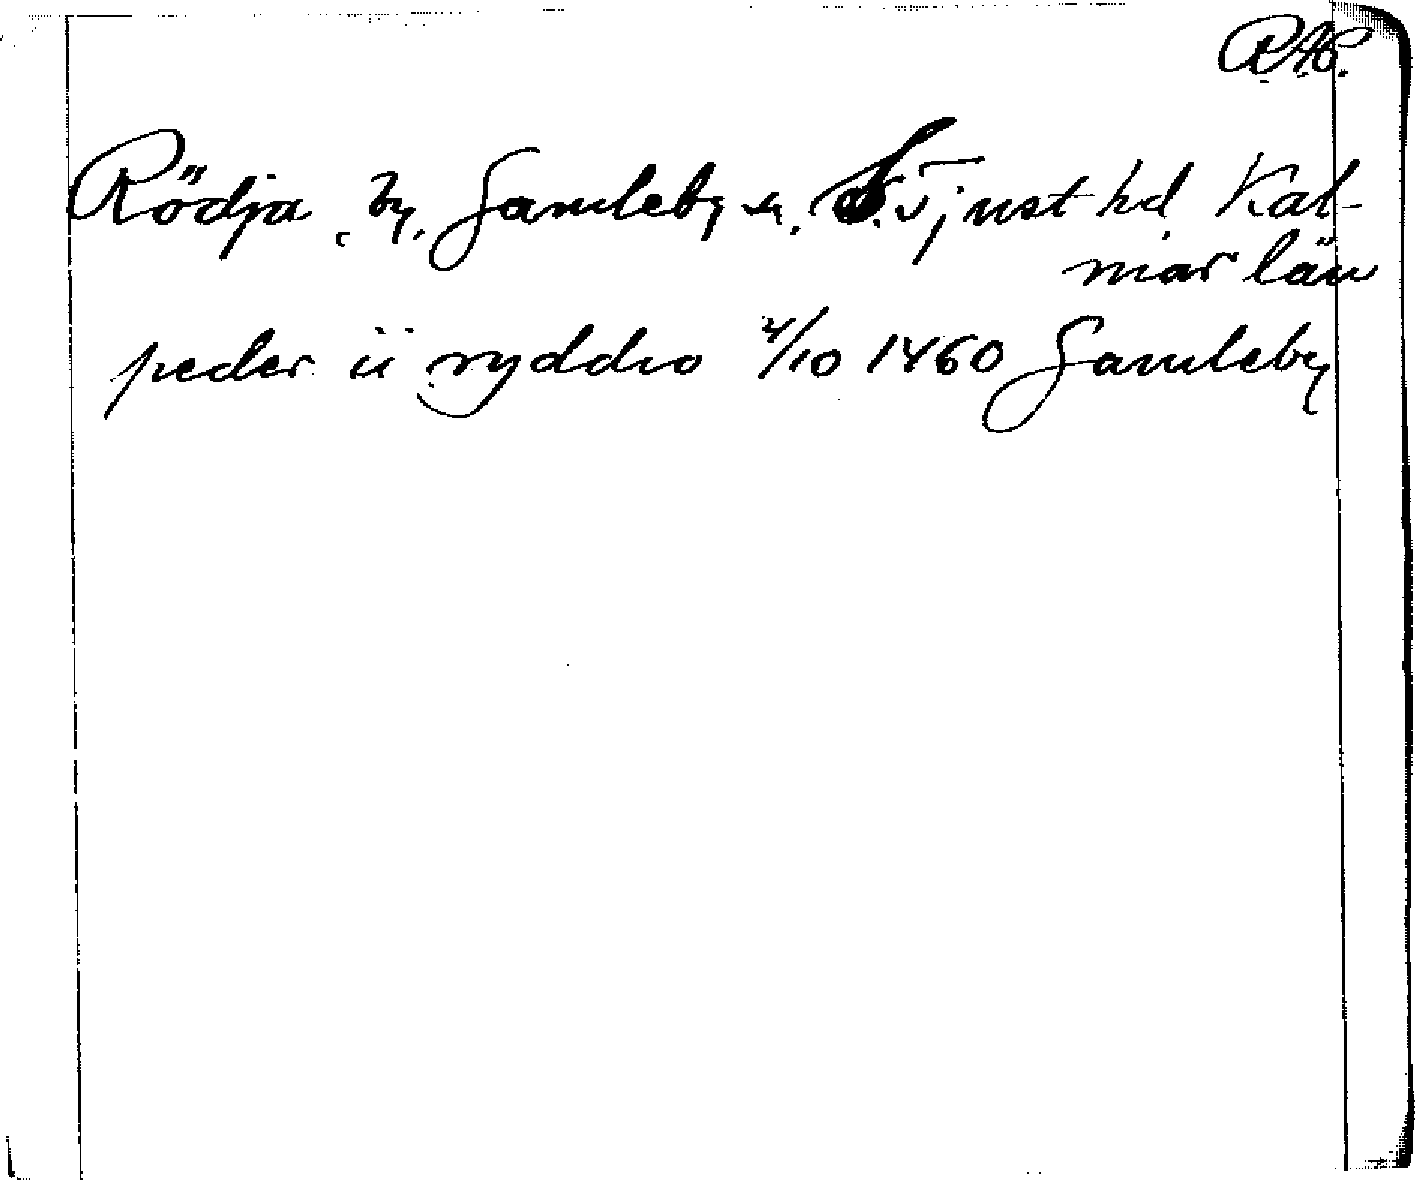 RAP.
Rödja, by, Gamleby sn, S. Tjust hd Kal-
mar län
peder ii ryddio 4/10 1460 Gamleby